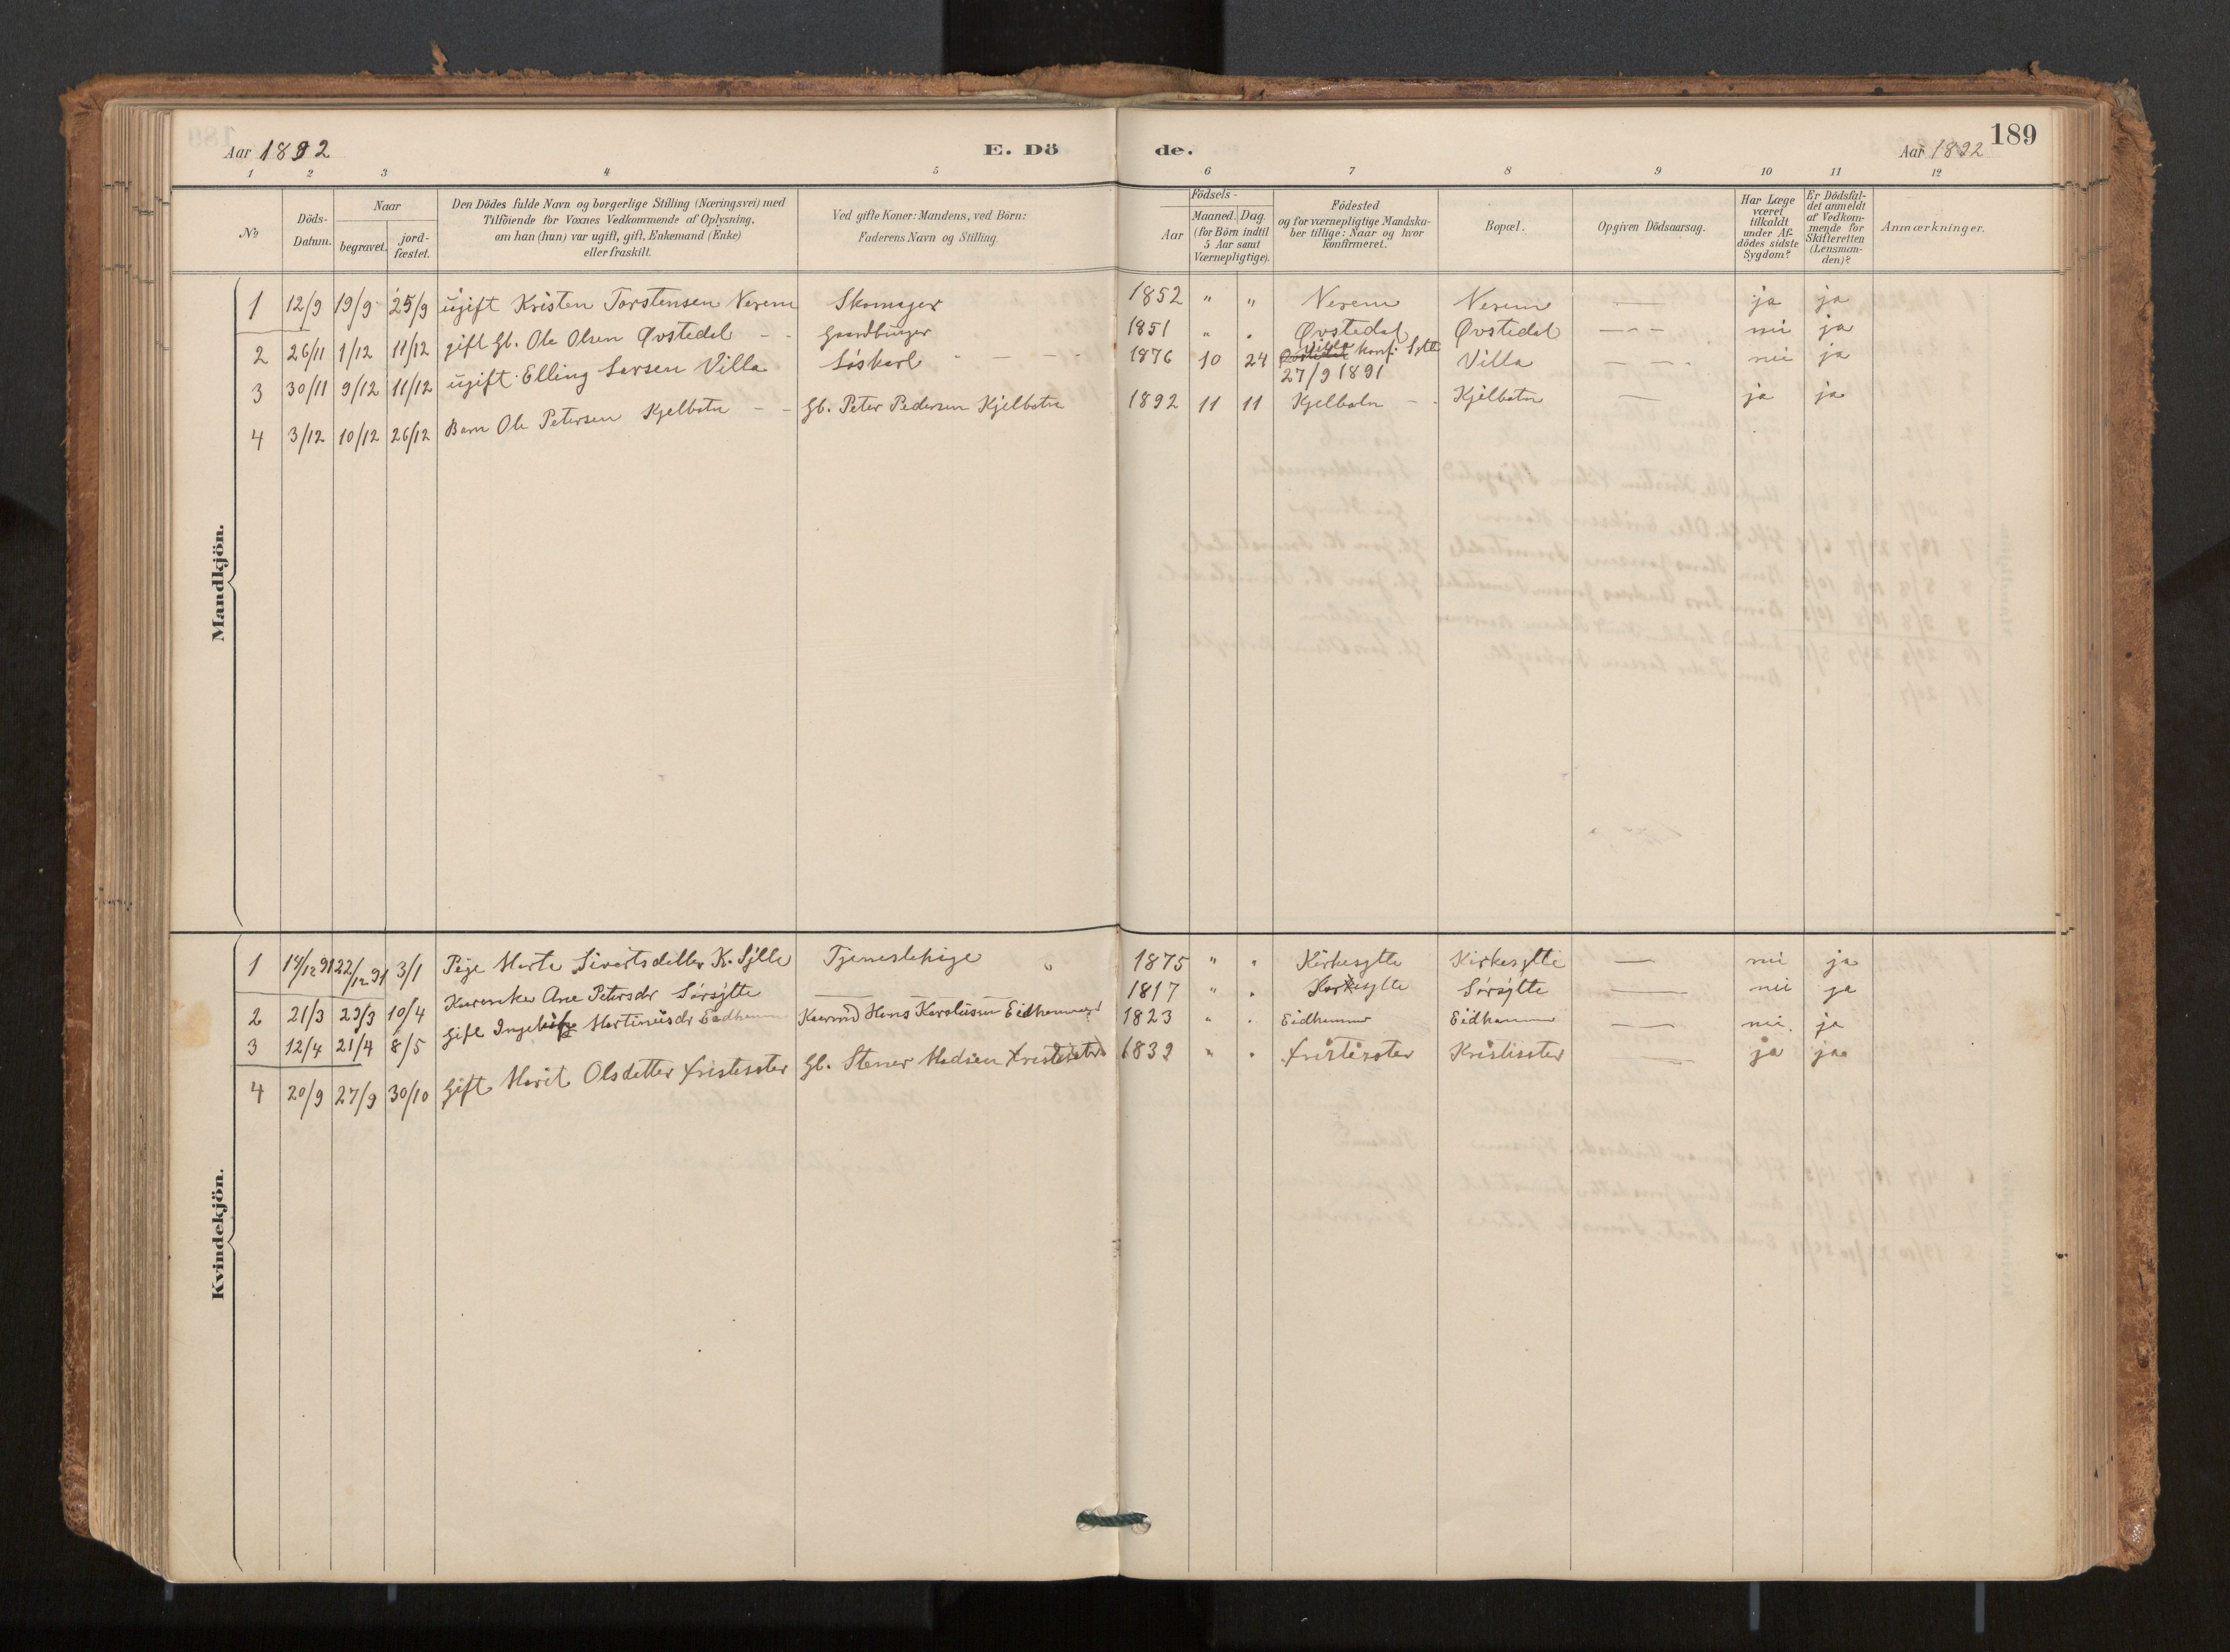 Aar 1892 E. Dö de. Aar 1892 189
1 2 3 4 5 6 7 8 9 10 11 12
№ Döds-Datum. Naar begravet. jord-fæstet. Den Dödes fulde Navn og borgerlige Stilling (Næringsvei) med Tilföiende for Voxnes Vedkommende af Oplysning, om han (hun) var ugift, gift, Enkemand (Enke) eller fraskilt. Ved gifte Koner: Mandens, ved Börn: Faderens Navn og Stilling. Födsels- Aar Maaned. Dag. (for Börn indtil 5 Aar samt Værnepligtige). Födested og for værnepligtige Mandskaber tillige: Naar og hvor Konfirmeret. Bopæl. Opgiven Dödsaarsag. Har Læge været tilkaldt under Afdödes sidste Sygdom? Er Dödsfaldet anmeldt af Vedkommende for Skifteretten (Lensmanden)? Anmærkninger.
Mandkjön.
1 12/9 19/9 25/9 ugift Kristen Torstensen Nerem Skomager 1852 " " Nerem Nerem — ja ja
2 26/11 1/12 11/12 gift Gb. Ole Olsen Øvstedal - - Gaardbruger 1851 " " Øvstedal Øvstedal - - - nei ja
3 30/11 9/12 11/12 ugift Elling Larsen Villa Löskarl " - - - 1876 10 24 Villa konf: Sylte 27/9 1891 Villa - - - nei ja
4 3/12 10/12 26/12 Barn Ole Petersen Kjelbotn - - Gb. Peter Pedersen Kjelbotn 1892 11 11 Kjelbotn - - Kjelbotn — ja ja
Kvindekjön.
1 14/12 91 22/12 91 3/1 Pige Marte Sivertsdatter K. Sylte Tjenestepige " 1875 " " Kirkesylte Kirkesylte — nei ja
2 21/3 29/3 10/4 Ane Petersdr Sörsylte — 1817 " " Sörsylte — nei ja
3 12/4 21/4 8/5 Gift Martinusdr Eidhammer Hans Karolusen Eidhammer 1823 " " Eidhammer Eidhammer — nei. ja
4 20/9 27/9 30/10 Gift Marit Olsdatter Kristisæter Gb. Stener Madsen Kristisæter 1832 " " Kristisæter Kristisæter — ja ja